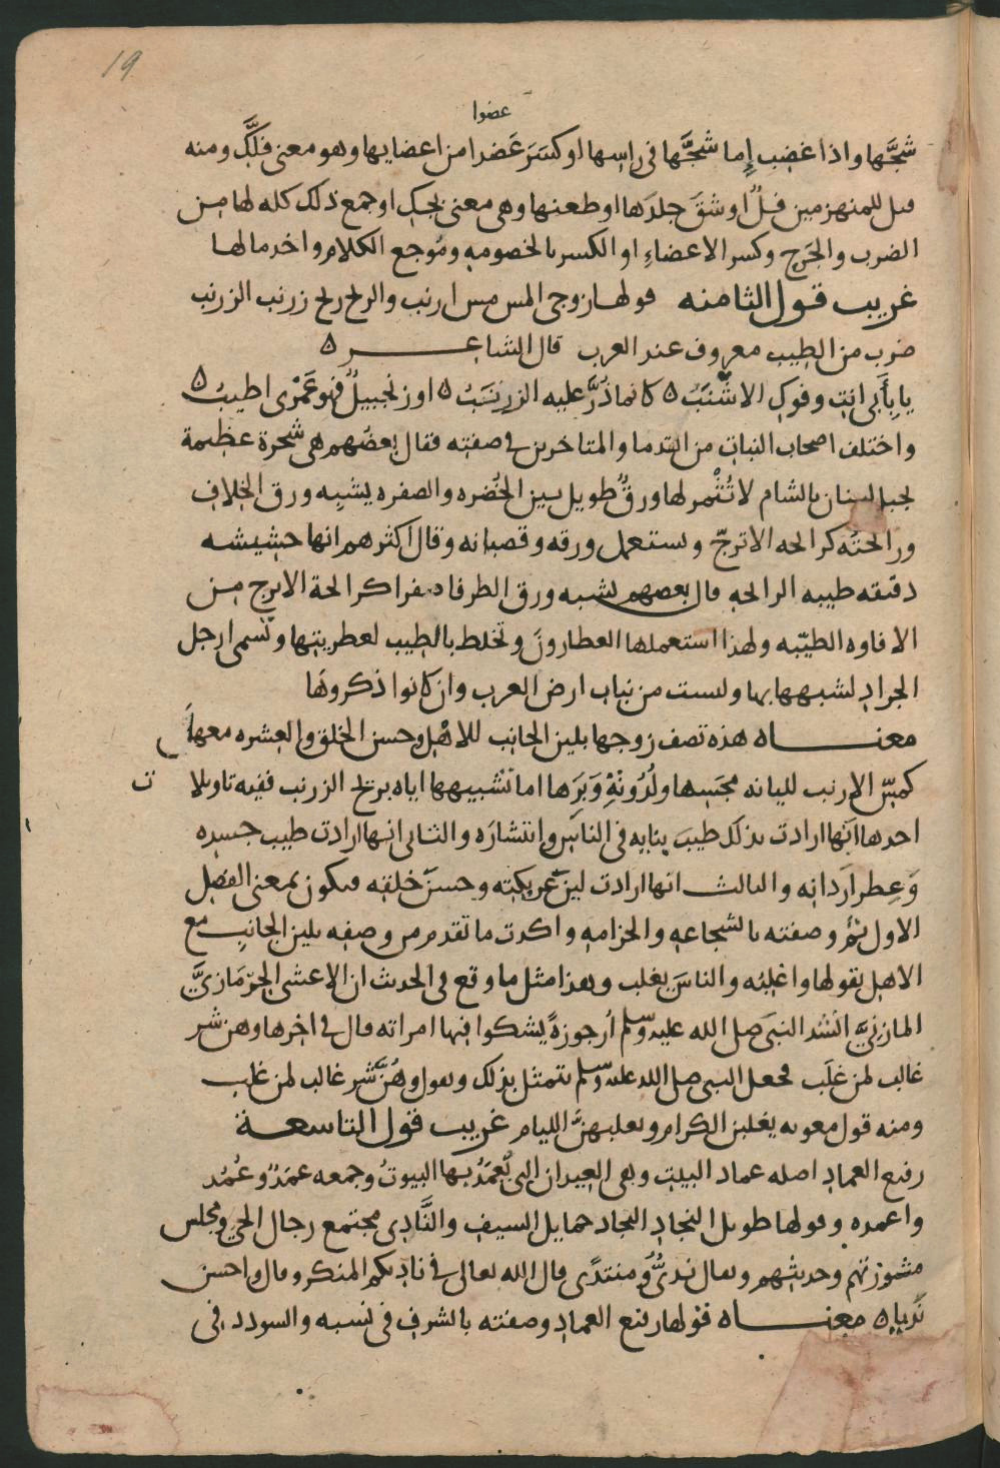 19
عضوا
شجَّها واذا غضب إما شجَّها في راسها او كسَرَ عَضدا من اعضايها وهو معنى فلَّكِ ومنه
قيل للمنهزمين فلٌ او شقَ جلدَها او طعنها وهى معنى بجك او جمع ذلك كله لها من
الضرب والجَرح وكسر الاعضاءِ او الكسر بالخصومه ومُوجع الكلام واخد مالها
غريب قول الثامنه قولها زوجى المس مس ارنب والريح ريح زرنب الزرنب
ضرب من الطيب معروف عند العرب قال الشاعـــر ه
يا بِأَبى انتِ وفوكِ الاشنَبُ ه كانما ذُرَّ عليه الزرنَبُ ه او زنجبيلٌ فهو عَمْرى اطيبُ ه
واختلف اصحاب النبات من القدما والمتاخرين في صفته فقال بعضهم هى شجرة عظيمة
بجبل لبنان بالشام لا تُثْمر لها ورقٌ طويل بين الخُضره والصفره يشبه ورق الخلاف
ورائحتُه كرائحه الاترجّ ويستعمل ورقه وقصبانه وقال اكثرهم انها حشيشه
دقيقه طيبه الرائحه قال بعضهم يشبه ورق الطرفا صفرا كرائحة الاترج من
الافاوه الطيّبه ولهذا استعملها العطارونَ وتخلط بالطيب لعطريتها وتسمى ارجل
الجراد لشبهها بها وليست من نبات ارض العرب وان كانوا ذكروها
معنـــاه هذه تصف زوجها بلين الجانب للاهْل وحسن الخلق والعشره معها
كمسّ الارنب لليانه مجَسِها ولُدُونَةِ وَبَرَها اما تشبيهها اياه بريح الزرنب ففيه تاويلا
ت
احدها انها ارادت بذلك طيبَ ثنايه في الناس وانتشارَه والثانى انها ارادت طيب جسده
وَعِطر اردانه والثالث انها ارادت لينَ عريكته وحسنَ خلقه فيكون بمعنى الفصل
الاول ثم وصفته بالشجاعه والحزامه واكدت ما تقدم من وصفه بلين الجانب مع
الاهل بقولها واغلبُه والناسَ يغلب وهذا مثل ما وقع في الحديث ان الاعشى الحِرْمازيَّ
المازنِيَّ انشد النبيَ صلى الله عليه وسلم ارجوزةً يشكوا فيها امراته قال في اخرها وهن شر
غالب لمن غلَب فجعل النبي صلى الله عليه وسلم يتمثل بذلك ويقول وهُنَّ شر غالب لمن غلب
ومنه قول معويه يغلبن الكرام ويغلبهنَّ الليام غريب قول التاسعة
رفيع العماد اصله عماد البيت وهى العيدان التى تُعمَّدُ بها البيوتُ وجمعه عمَدٌ وعُمُد
واعمده وقولها طويل النجاد النجاد حمايل السيف والنَّادِى مجتمع رجال الحي ومجلس
مشورتهم وحديثهم ويقال نَدىٌّ ومنتدًى قال الله تعالى في ناديكم المنكر وقال واحسن
نَديا ه معنـــاه قولها رفيع العماد وصفته بالشرف في نسبه والسودد فى